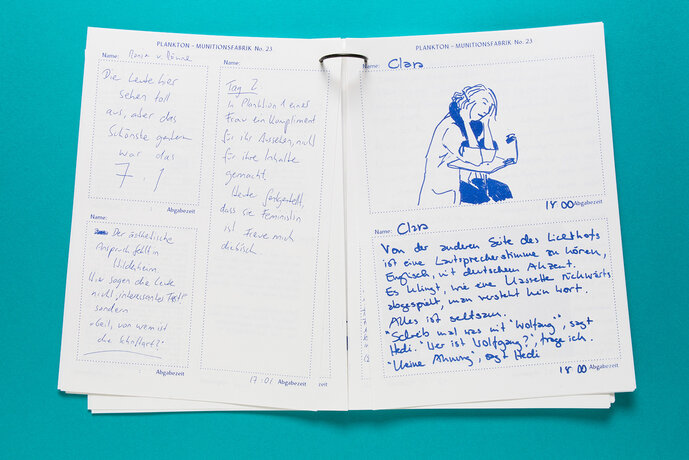 PLANKTON – MUNITIONSFABRIK No. 23
Name: Ronja v. Rönne
Die Leute hier
sehen toll
aus, aber das
Schönste gestern
war das
7.1
Abgabezeit
Name:
Der ästhetische
Anspruch fehlt in
Hildesheim
Hier sagen die Leute
nicht „interessanter Text"
sondern
„Geil, von wem ist
die Schriftart?"
Abgabezeit
Tag 2
In Plankton 1 einer
Frau ein Kompliment
für ihr Aussehen, nicht
für ihre Inhalte
gemacht.
Heute festgestellt,
dass sie Feministin
ist. Freue mich
diebisch.
17:01 Abgabezeit
PLANKTON – MUNITIONSFABRIK No. 23
Name: Clara
18 00 Abgabezeit
Name: Clara
Von der anderen Seite des Lichthofs
ist eine Lautsprecherstimme zu hören,
Englisch, mit deutschem Akzent.
Es klingt, wie eine Kassette rückwärts
abgespielt, man versteht kein Wort.
Alles ist seltsam.
"Schreib mal was mit 'Wolfgang'", sagt
Hedi. "Wer ist Wolfgang?", frage ich.
"Keine Ahnung", sagt Hedi
18 00 Abgabezeit